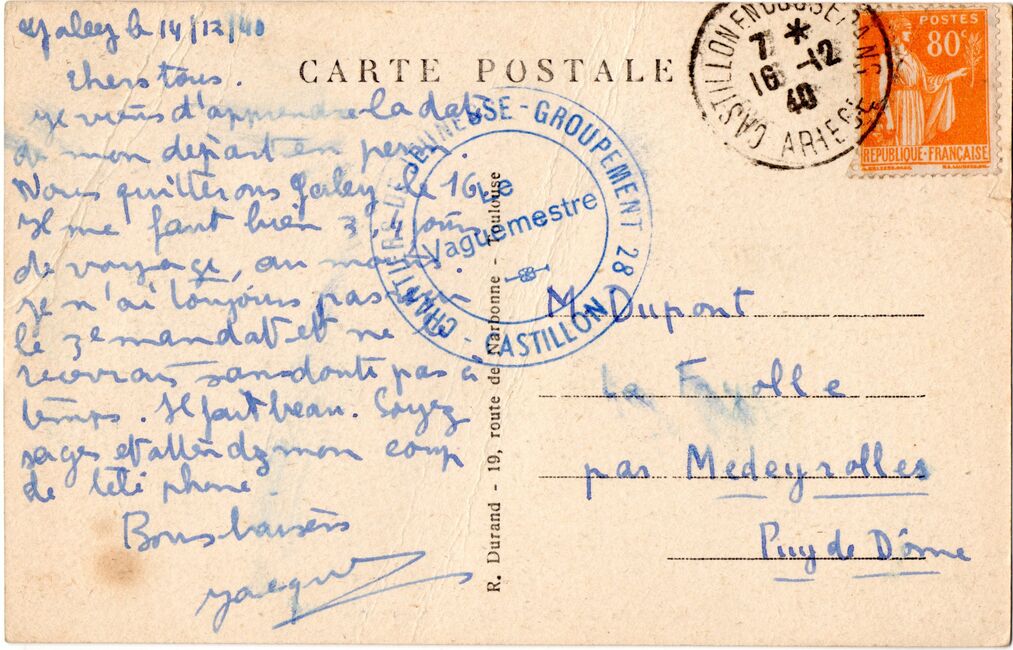 Galey le 14/12/40
Chers tous.
je viens d'apprendre la date
de mon départ en perm.
Nous quitterons Galey le 16.
Il me faut bien 3, 4 jours
de voyage, au moins.
je n'ai toujours pas
le 3e mandat et ne
recevrais sans doute pas à
temps. Il fait beau. Soyez
sages et attendez mon coup
de télé phone.
Bons baisers
Jacques
CARTE POSTALE
CHANTIERS DE JEUNESSE - GROUPEMENT 28
- CASTILLON -
Le
Vaguemestre
R. Durand - 19, route de Narbonne - Toulouse
CASTILLON EN COUSERANS
7 *
16 -12
40
ARIEGE
POSTES
80c
RÉPUBLIQUE FRANÇAISE
M. Dupont
La Fayolle
par Medeyrolles
Puy de Dôme